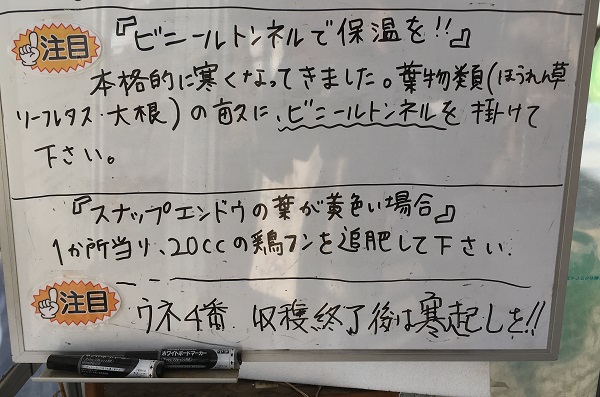 注目
『ビニールトンネルで保温を!!』
本格的に寒くなってきました。葉物類(ほうれん草
リーフレタス・大根)の畝に、ビニールトンネルを掛けて
下さい。
『スナップエンドウの葉が黄色い場合』
1か所当り、20ccの鶏フンを追肥して下さい
注目
ウネ4番 収穫終了後は寒起しを!!
ホワイトボードマーカー
ホワイトボードマーカー